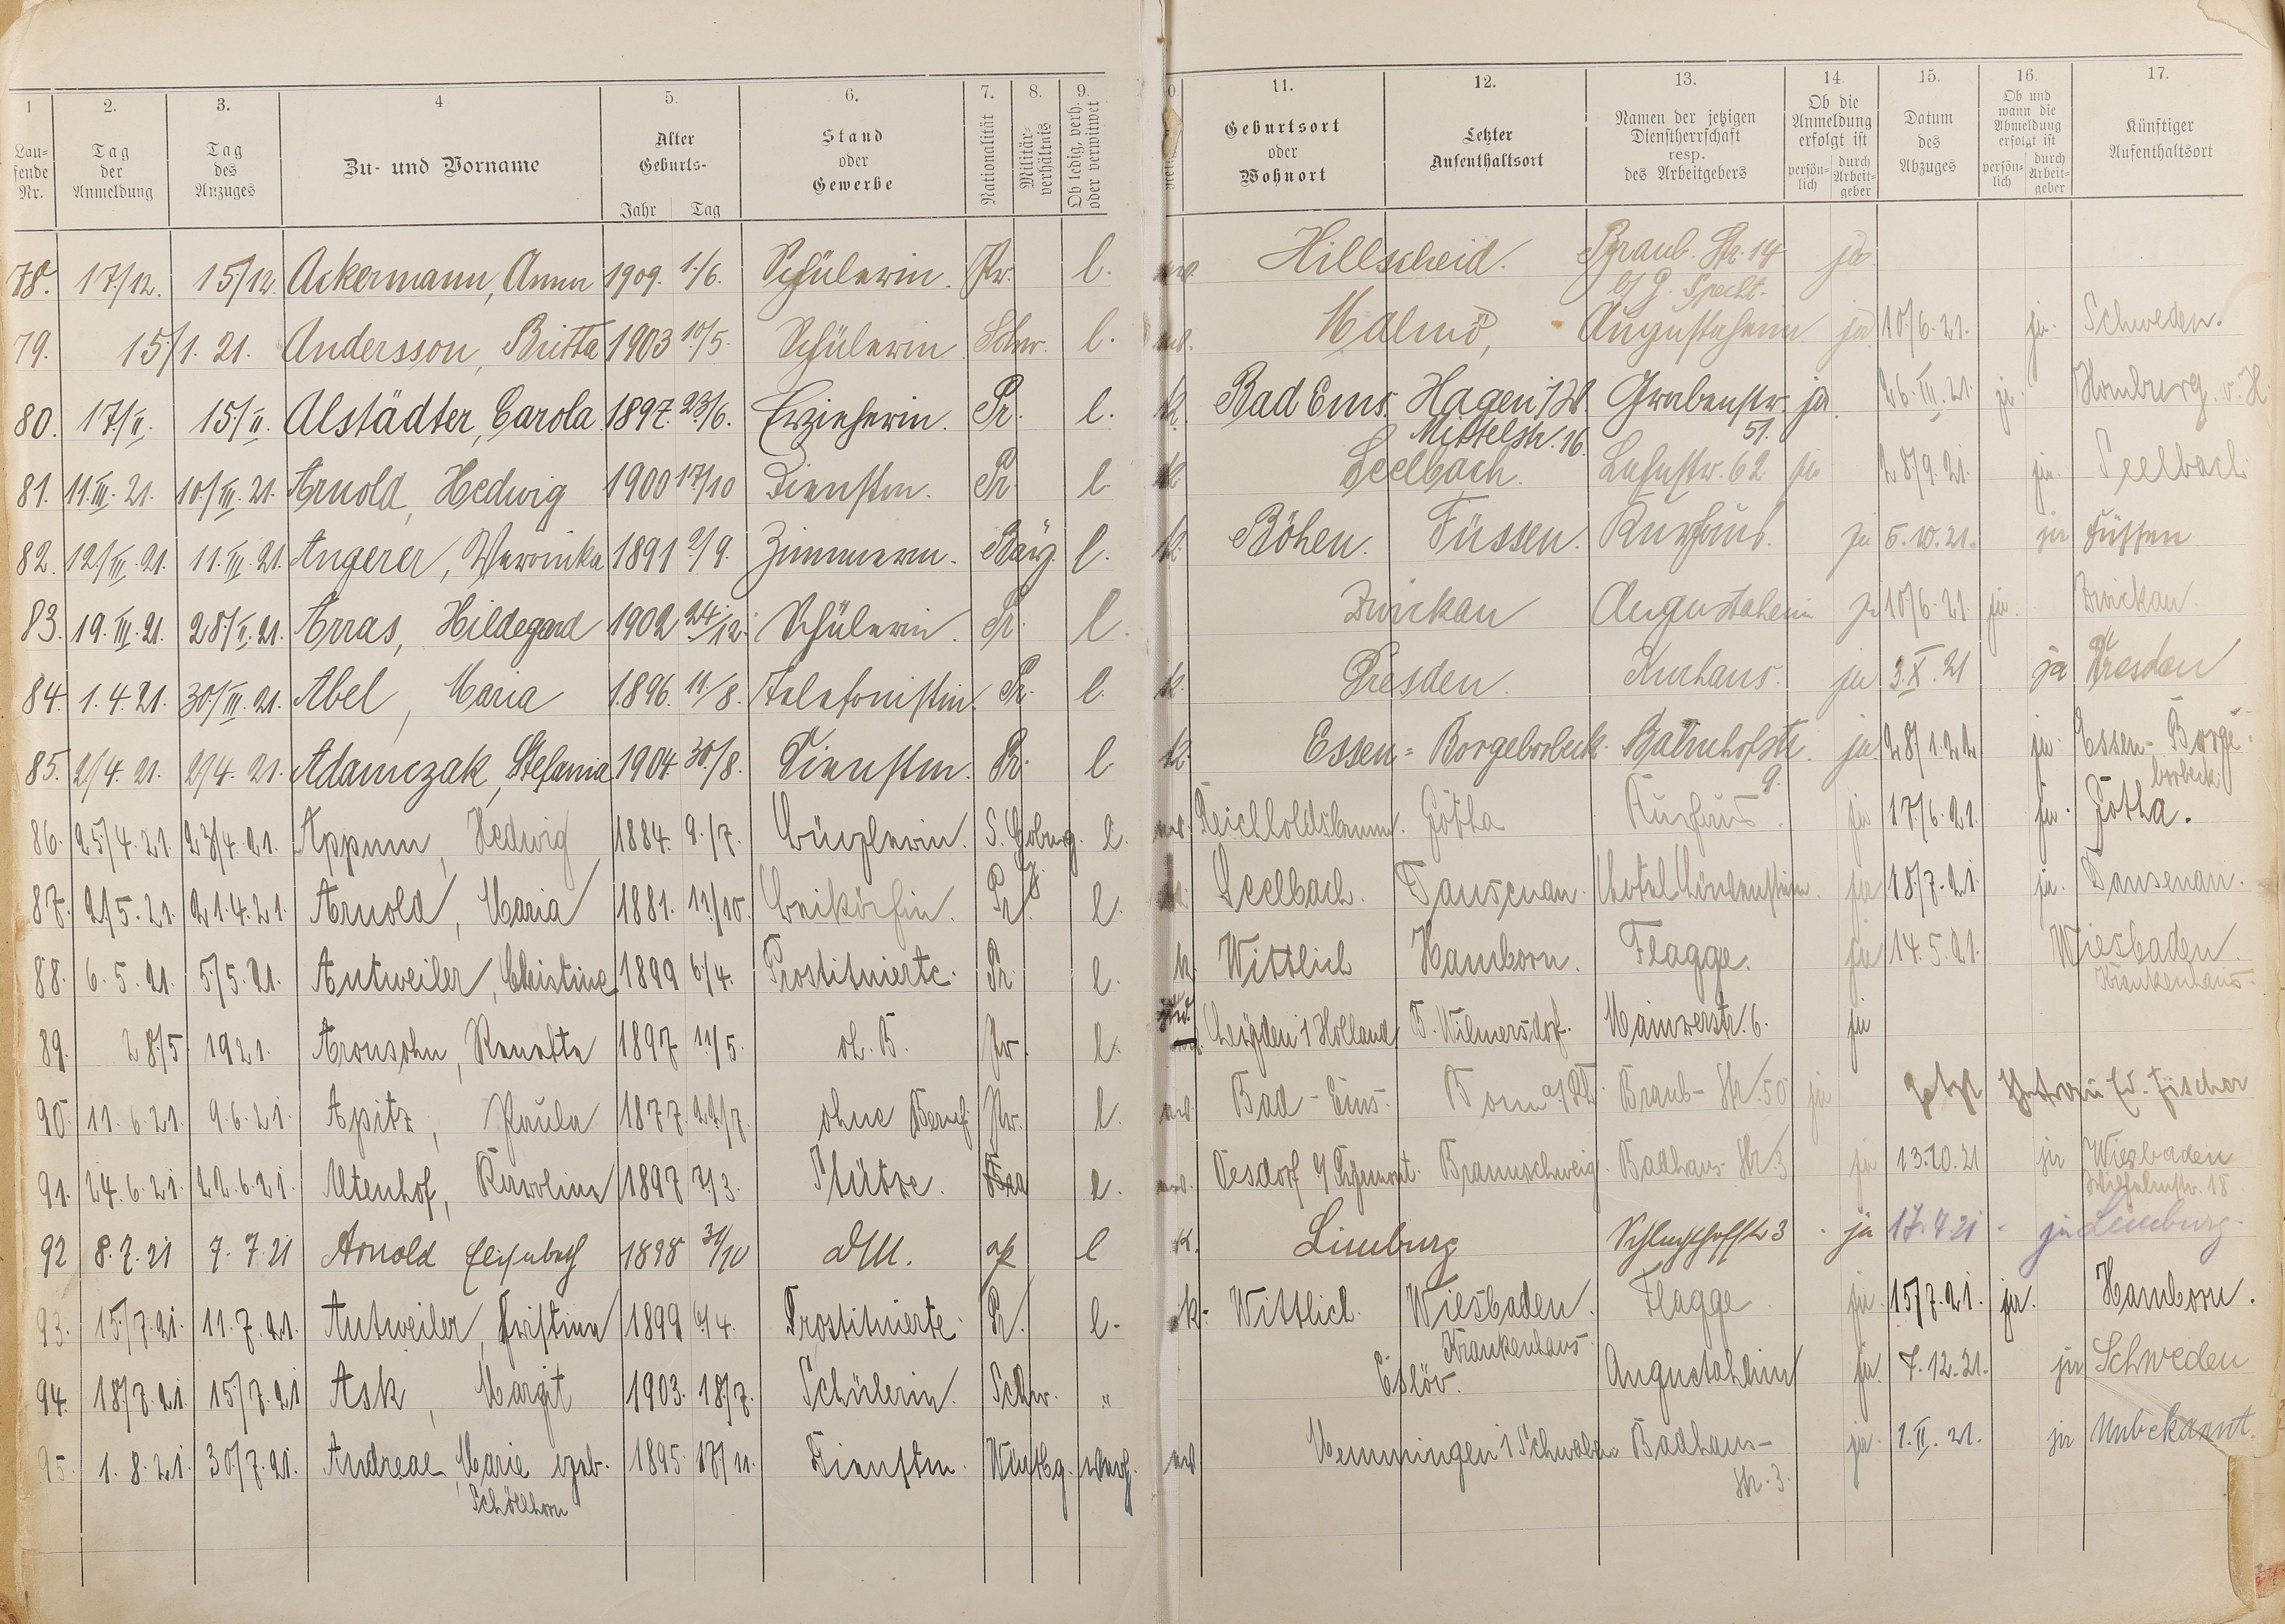 1 2. 3. 4 5. 6. 7. 8. 9. 0. 11. 12. 13. 14. 15. 16. 17.
Lau-
fende
Nr.
Tag
der
Anmeldung
Tag
des
Anzuges
Zu- und Vorname
Alter
Geburts-
Jahr Tag
Stand
oder
Gewerbe
Nationalität
Militär-
verhältnis
Ob ledig, verh.
oder verwitwet
Geburtsort
oder
Wohnort
Letzter
Aufenthaltsort
Namen der jetzigen
Dienstherrschaft
resp.
des Arbeitgebers
Ob die
Anmeldung
erfolgt ist
persön-
lich
durch
Arbeit-
geber
Datum
des
Abzuges
Ob und
wann die
Abmeldung
erfolgt ist
persön-
lich
durch
Arbeit-
geber
Künftiger
Aufenthaltsort
78. 17/12. 15/12. Ackermann, Anna 1909. 1./6. Schülerin. Pr. l. Hillscheid. Braub. Str. 14 ja.
b/ G. Specht.
79. 15/1. 21. Andersson, Britta 1903 10/5. Schülerin Schw. l. Malmö, Augustaheim ja 10/6.21. ja. Schweden.
80. 17/II. 15/II. Alstädter, Carola 1897. 23/6. Erzieherin. Pr. l. k. Bad Ems. Hagen i/W. Grabenstr. ja. 26.III.21. ja. Homburg v. H.
Mittelstr. 16. 51.
81. 11.III.21. 10/III.21. Arnold, Hedwig 1900 17/10 Dienstm. Pr. l. k Seelbach. Lahnstr. 62. ja 28/9.21. ja. Seelbach
82. 12/III.21. 11.III.21. Angerer, Veronika 1891 2/9. Zimmerm. Bay. l. k. Böhen. Füssen. Kurhaus. ja 5.10.21. ja Füssen
83. 19.III.21. 28/II.21. Arras, Hildegard 1902 24./12. Schülerin. Pr. l. Zwickau Augustaheim ja 10/6.21. ja. Zwickau.
84. 1.4.21. 30/III.21. Abel, Maria 1896. 11./8. Telefonistin. Pr. l. k. Dresden. Kurhaus. ja 3.X.21 ja Dresden
85. 2/4.21. 2/4.21. Adamczak, Stefania 1904. 30./8. Dienstm. Pr. l k. Essen-Borgeborbeck. Bahnhofstr. ja 28/1.22 ja. Essen-Borge-
9. borbeck.
86. 25/4.21. 23/4.21. Appun, Hedwig 1884. 9./7. S. Coburg. l. Gotha Kurhaus. ja 17/6.21. ja. Gotha.
87. 2/5.21. 21.4.21. Arnold, Maria 1881. 11/10. Beiköchin. Pr. l. Seelbach. Dausenau. Hotel ja 18/7.21. ja. Dausenau.
88. 6.5.21. 5/5.21. Antweiler, Christine 1899 6/4. Prostituierte. Pr. l. k. Wittlich Hamborn. Flagge. ja 14.5.21. Wiesbaden.
Krankenhaus.
89. 28/5 1921. Aronsohn, Renatta 1897 11/5. oh. B. Pr. l. Leyden i Holland B. Wilmersdorf. Mainzerstr. 6. ja
90. 11.6.21. 9.6.21. Apitz, Paula 1877 22/7. ohne Beruf Pr. l. Bad-Ems. Bonn a/Rh. Braub-Str. 50 ja jetzt Ed. Fischer
91. 24.6.21. 22.6.21. Altenhof, Karoline 1897 7./3. Stütze. Bra l. Oesdorf b/Pyrmont. Braunschweig. Badhaus-Str. 3 ja 13.10.21 ja Wiesbaden
Wilhelmstr. 18
92 8.7.21 7.7.21 Arnold Elisabeth 1898 31/10 DM. l k. Limburg Schlachthofstr 3 ja 17.7.21 ja Limburg
93. 15./7.21. 11.7.21. Antweiler, Christina 1899 6/4. Prostituierte. Pr. l. k. Wittlich. Wiesbaden. Flagge ja. 15/7.21. ja. Hamborn.
Krankenhaus
94. 18/7.21. 15/7.21 Ask, Margit 1903. 18/7. Schülerin. Schw. " Eslöv. Augustaheim ja. 7.12.21. ja Schweden
95. 1.8.21. 30/7.21. Andreae, Marie geb. 1895. 17/11. Dienstm. Württbg. verh. Memmingen i Schwaben Badhaus- ja. 1.II.21. ja Unbekannt.
Schöllhorn Str. 3.